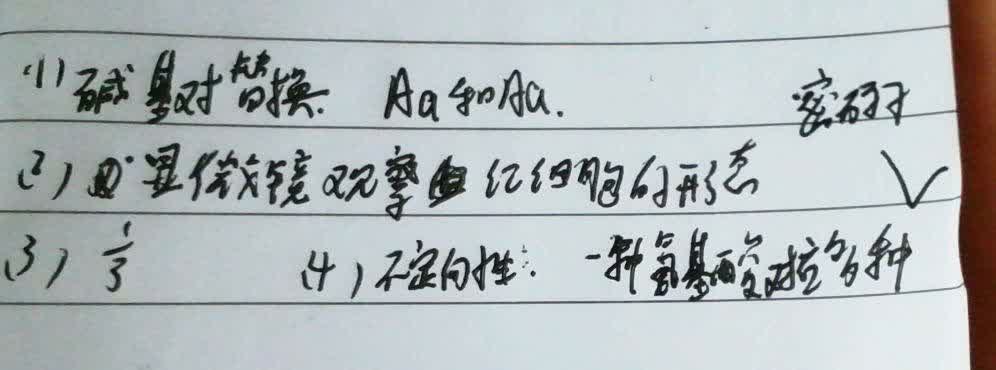 (1) 碱基对替换. Aa和Aa.
密码子
(2) 显微镜观察血红细胞的形态
(3) 1/3 (4) 不定向性: 一种氨基酸对应多种